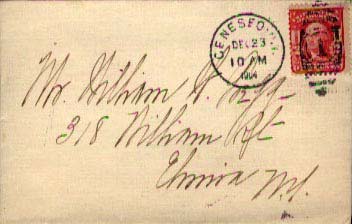 GENESEO, N.Y.
DEC 23
10 AM
1904
Mr. William H.
318 William St
Elmira N.Y.